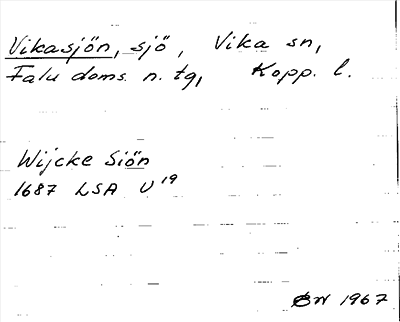 Vikasjön, sjö, Vika sn,
Falu doms. n. tg, Kopp. l.
Wijcke Siön
1687 LSA U 19
1967